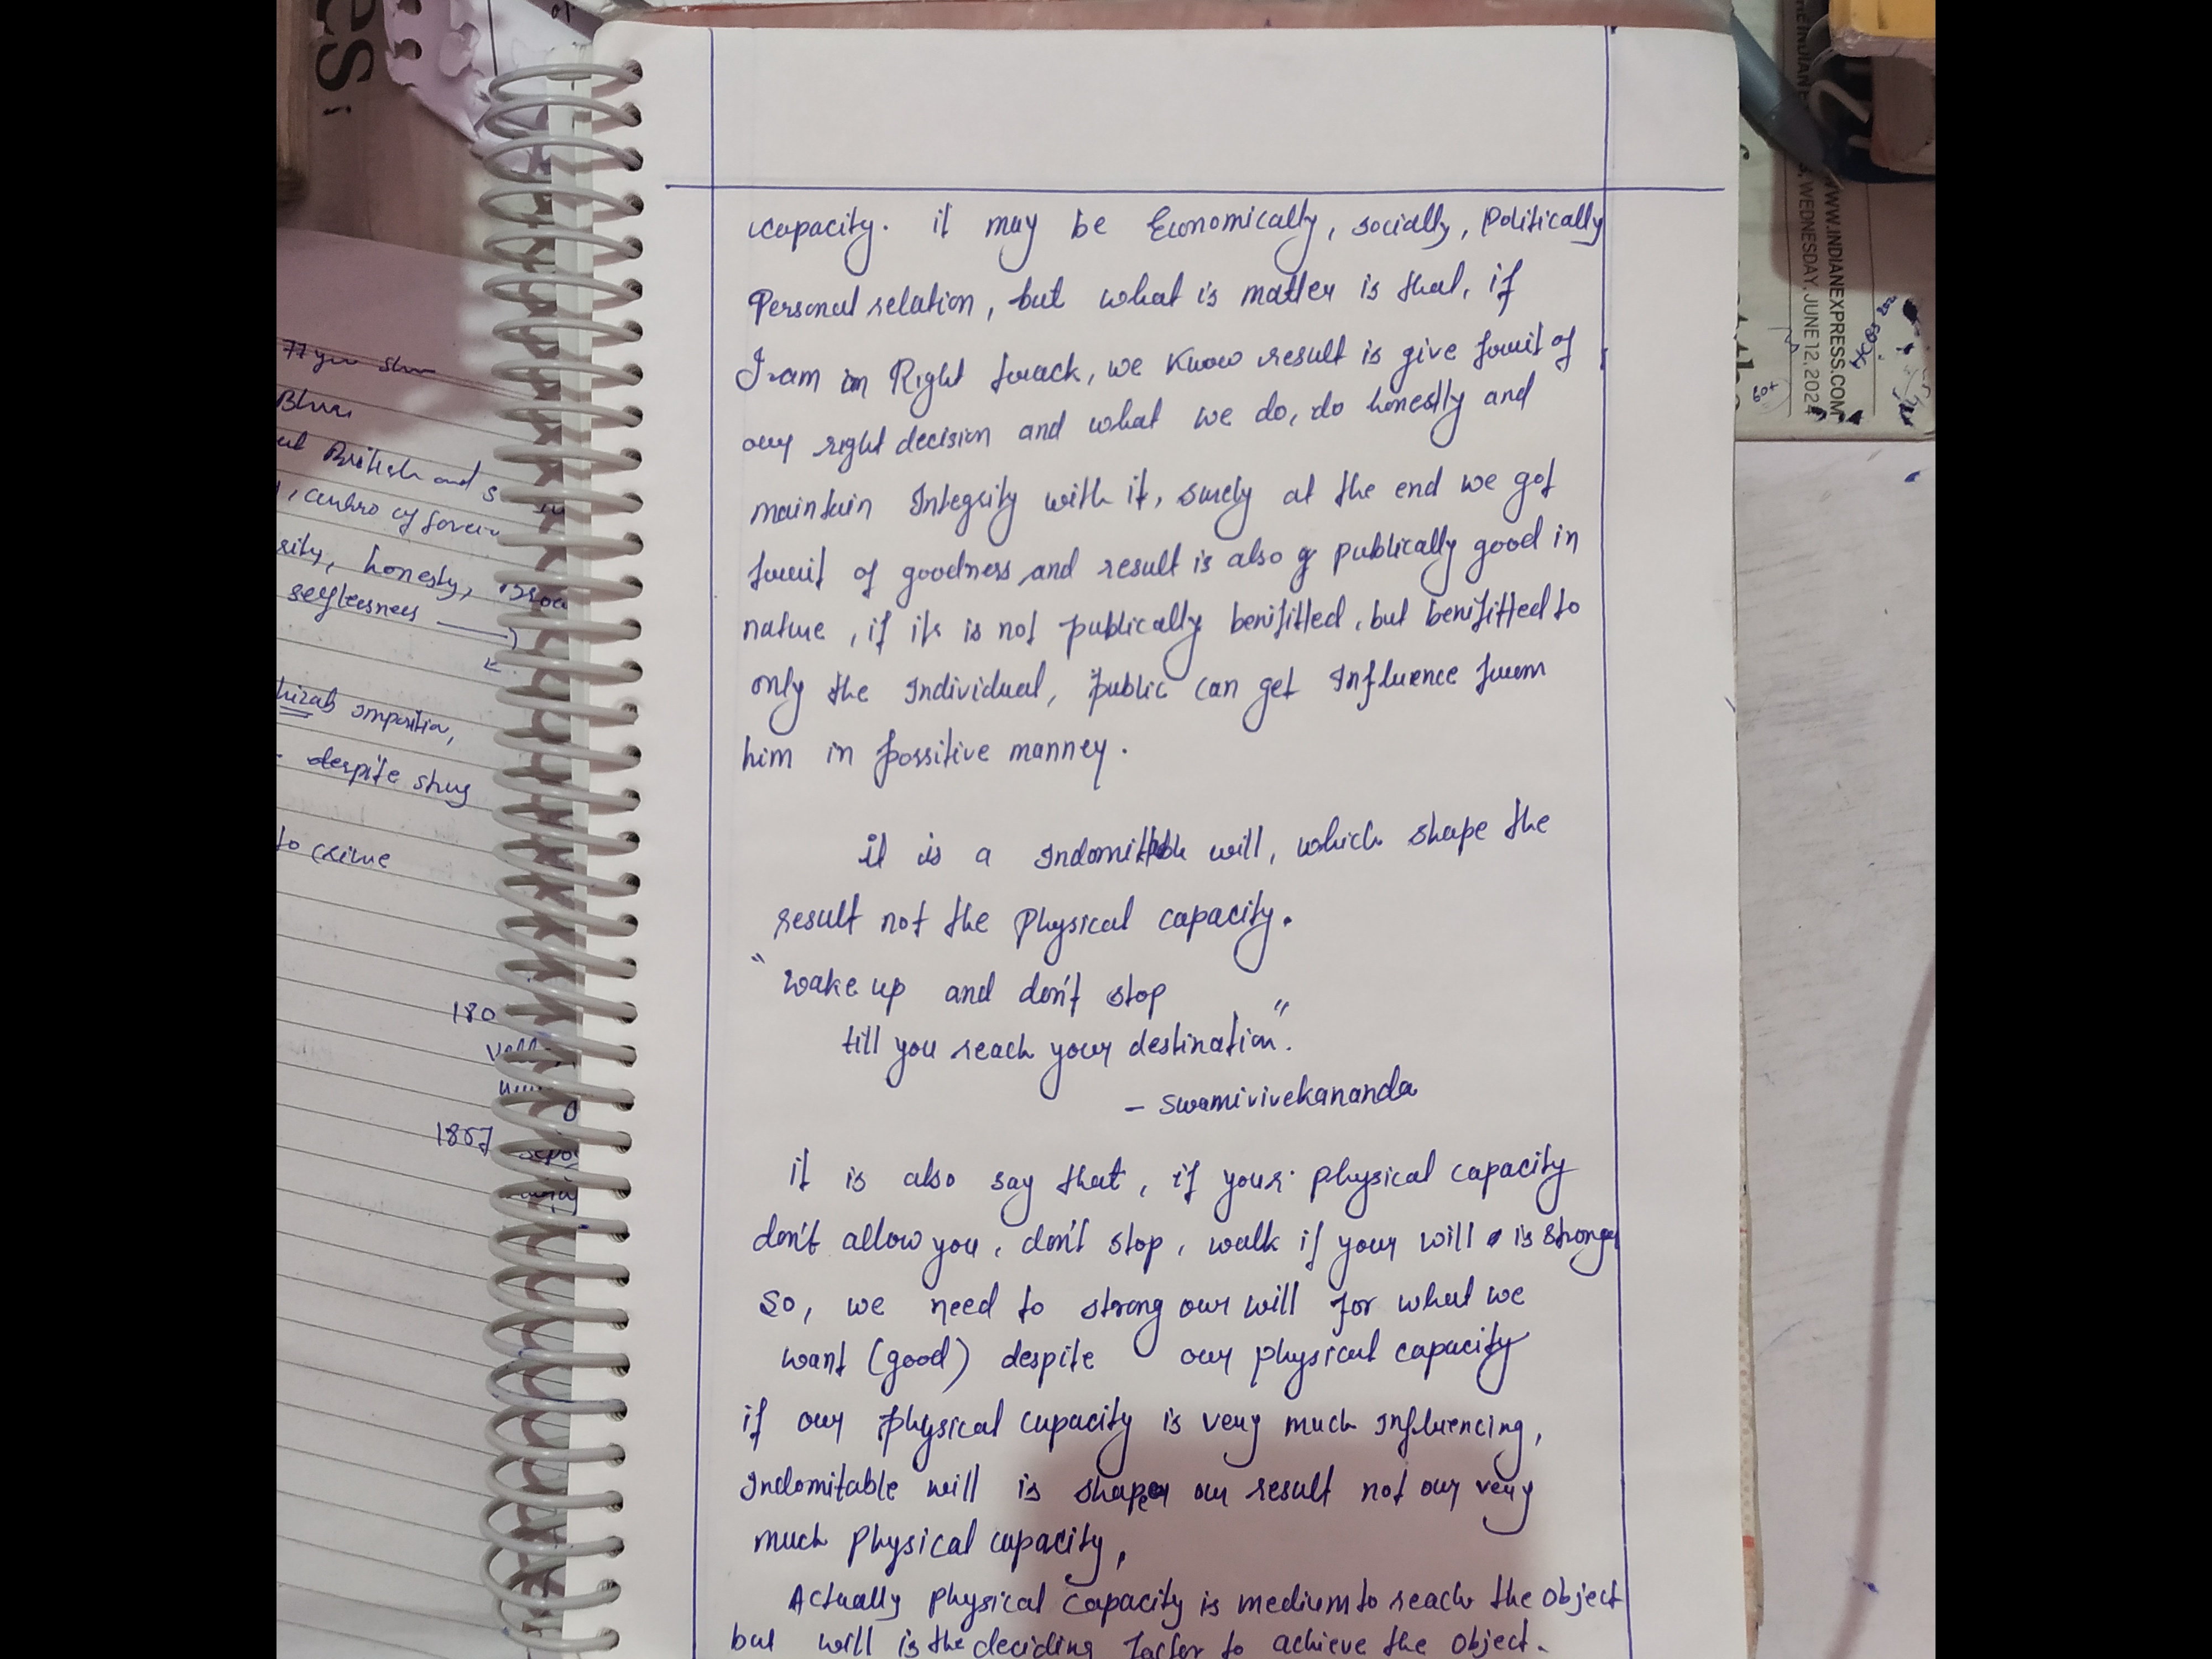 capacity. it may be Economically, socially, Politically
Personal relation, but what is matter is that, if
I am in Right track, we know result is give fruit of
our right decision and what we do, do honestly and
maintain Integrity with it, surely at the end we got
fruit of goodness and result is also publically good in
nature, if its is not publically benifitted, but benifitted to
only the Individual, public can get Influence from
him in possitive manney.
it is a Indomitable will, which shape the
result not the Physical capacity.
"wake up and don't stop
till you reach your destination".
- Swamivivekananda
it is also say that, if your physical capacity
don't allow you, don't stop, walk if your will is stronger
So, we need to strong our will for what we
want (good) despite our physical capacity
if our physical capacity is very much Influencing,
Indomitable will is shape our result not our very
much Physical capacity,
Actually Physical Capacity is medium to reach the object
but will is the deciding factor to achieve the object.
Bhrai
British and s
honesty,
seflessness
imposition,
despite strug
to crime
180
1857
WWW.INDIANEXPRESS.COM
WEDNESDAY, JUNE 12, 2024